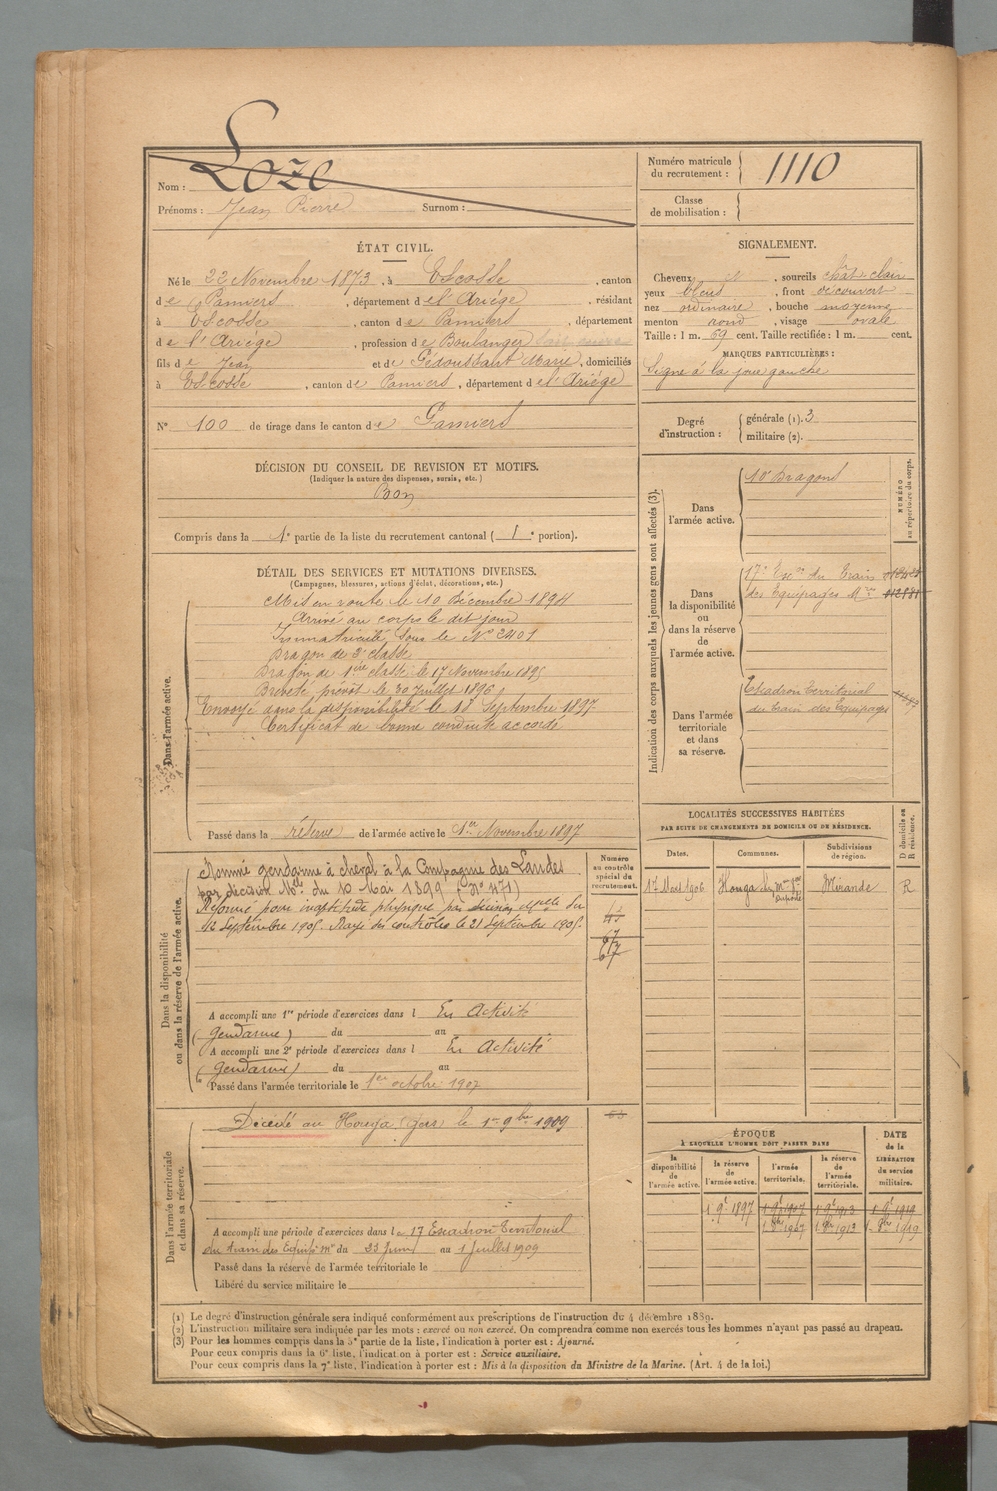 Nom : Loze
Prénoms : Jean Pierre Surnom :
Numéro matricule du recrutement : 1110
Classe de mobilisation :
ÉTAT CIVIL.
Né le 22 Novembre 1873, à Escosse, canton
de Pamiers, département de l'Ariége, résidant
à Escosse, canton de Pamiers, département
de l'Ariége, profession de Boulanger
fils de Jean et de Gédoussaut Marie, domiciliés
à Escosse, canton de Pamiers, département de l'Ariége
N° 100 de tirage dans le canton de Pamiers
SIGNALEMENT.
Cheveux et, sourcils chât. clair
yeux bleus, front découvert
nez ordinaire, bouche moyenne
menton rond, visage ovale
Taille : 1 m. 69 cent. Taille rectifiée : 1 m. cent.
MARQUES PARTICULIÈRES :
Signe à la joue gauche
Degré d'instruction : générale (1). 3
militaire (2).
DÉCISION DU CONSEIL DE REVISION ET MOTIFS.
(Indiquer la nature des dispenses, sursis, etc.)
Bon
Compris dans la 1e partie de la liste du recrutement cantonal ( 1 e portion).
DÉTAIL DES SERVICES ET MUTATIONS DIVERSES.
(Campagnes, blessures, actions d'éclat, décorations, etc.)
Dans l'armée active.
Mis en route le 10 Décembre 1894
Arrivé au corps le dit jour
Immatriculé sous le N° 2401
Dragon de 2e classe
Dragon de 1ère classe le 17 Novembre 1895
Breveté prévôt le 30 Juillet 1896
Envoyé dans la disponibilité le 18 Septembre 1897
Certificat de bonne conduite accordé
Passé dans la réserve de l'armée active le 1er Novembre 1897
Indication des corps auxquels les jeunes gens sont affectés (3).
NUMÉRO au répertoire du corps.
Dans l'armée active.
10e Dragons
Dans la disponibilité ou dans la réserve de l'armée active.
17e Esc.on du Train
des Equipages M.res
Dans l'armée territoriale et dans sa réserve.
Escadron territorial
du train des Equipages
LOCALITÉS SUCCESSIVES HABITÉES
PAR SUITE DE CHANGEMENTS DE DOMICILE OU DE RÉSIDENCE.
D domicile ou R résidence.
Dates. Communes. Subdivisions de région.
17 Mars 1906 Houga Mirande R
Dans la disponibilité ou dans la réserve de l'armée active.
Numéro au contrôle spécial du recrutement.
Nommé gendarme à cheval à la Compagnie des Landes
par décision Mlle du 10 Mai 1899 (N° 471)
Réformé pour inaptitude physique par décision mlle du
12 Septembre 1905. Rayé des contrôles le 21 Septembre 1905.
A accompli une 1re période d'exercices dans l En Activité
(gendarme) du au
A accompli une 2e période d'exercices dans l En Activité
(gendarme) du au
Passé dans l'armée territoriale le 1er octobre 1907
Dans l'armée territoriale et dans sa réserve.
Décédé au Houga (Gers) le 1er 9bre 1909
A accompli une période d'exercices dans le 17 Escadron territorial
du train des Equip. Mres du 23 Juin au 1 Juillet 1909
Passé dans la réserve de l'armée territoriale le
Libéré du service militaire le
ÉPOQUE
À LAQUELLE L'HOMME DOIT PASSER DANS
DATE de la LIBÉRATION du service militaire.
la disponibilité de l'armée active. la réserve de l'armée active. l'armée territoriale. la réserve de l'armée territoriale.
1 9e 1897 1 9e 1907 1 9e 1913 1 9e 1919
1 8bre 1907 1 8bre 1913 1 8bre 1919
(1) Le degré d'instruction générale sera indiqué conformément aux prescriptions de l'instruction du 4 décembre 1889.
(2) L'instruction militaire sera indiquée par les mots : exercé ou non exercé. On comprendra comme non exercés tous les hommes n'ayant pas passé au drapeau.
(3) Pour les hommes compris dans la 5e partie de la liste, l'indication à porter est : Ajourné.
Pour ceux compris dans la 6e liste, l'indication à porter est : Service auxiliaire.
Pour ceux compris dans la 7e liste, l'indication à porter est : Mis à la disposition du Ministre de la Marine. (Art. 4 de la loi.)